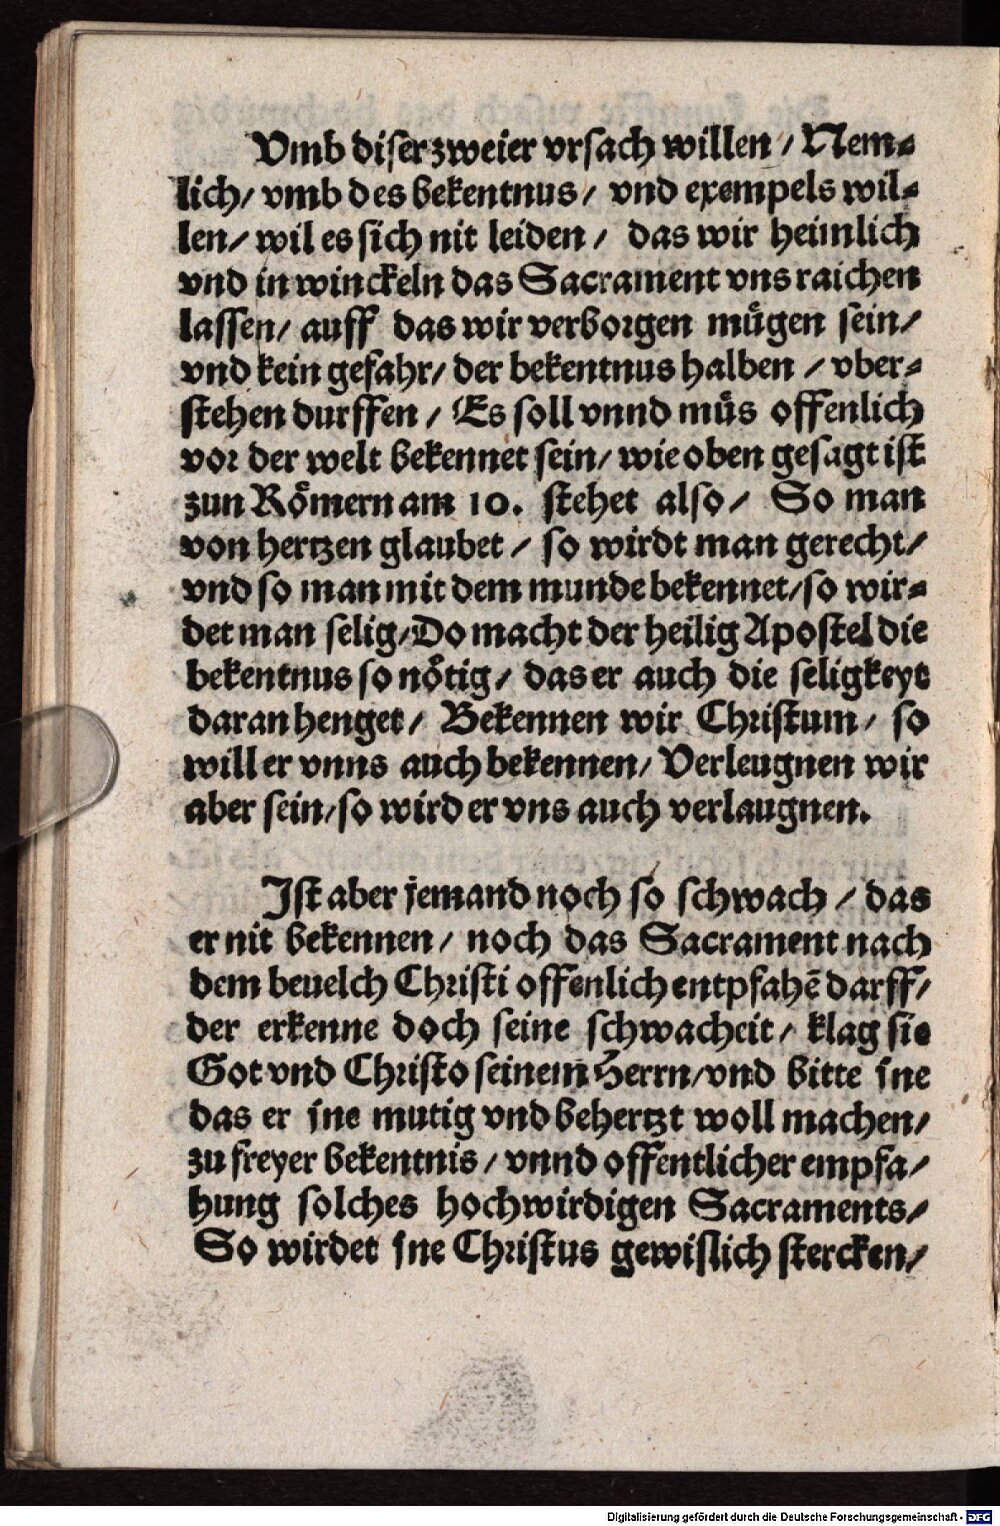 Vmb diser zweier vrsach willen / Nem⸗
lich / vmb des bekentnus / vnd exempels wil⸗
len / wil es sich nit leiden / das wir heimlich
vnd in winckeln das Sacrament vns raichen
lassen / auff das wir verborgen muͤgen sein /
vnd kein gefahr / der bekentnus halben / vber⸗
stehen durffen / Es soll vnnd muͤs offenlich
vor der welt bekennet sein / wie oben gesagt ist
zun Roͤmern am 10. stehet also / So man
von hertzen glaubet / so wirdt man gerecht /
vnd so man mit dem munde bekennet / so wir⸗
det man selig / Do macht der heilig Apostel die
bekentnus so noͤtig / das er auch die seligkeyt
daran henget / Bekennen wir Christum / so
will er vnns auch bekennen / Verleugnen wir
aber sein / so wird er vns auch verlaugnen.
Ist aber jemand noch so schwach / das
er nit bekennen / noch das Sacrament nach
dem beuelch Christi offenlich entpfahẽ darff /
der erkenne doch seine schwacheit / klag sie
Got vnd Christo seinem Herrn / vnd bitte jne
das er jne mutig vnd behertzt woll machen /
zu freyer bekentnis / vnnd offentlicher empfa /
hung solches hochwirdigen Sacraments /
So wirdet jne Christus gewislich stercken /
Digitalisierung gefördert durch die Deutsche Forschungsgemeinschaft - DFG